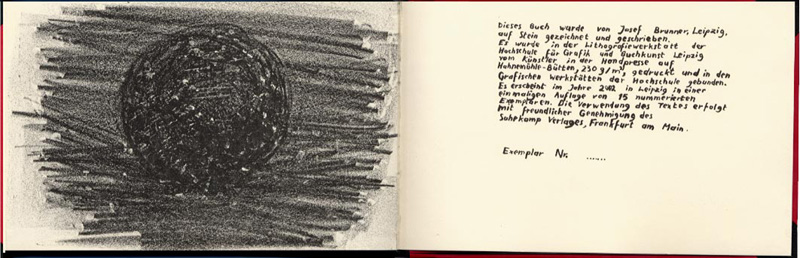 Dieses Buch wurde von Josef Brunner, Leipzig,
auf Stein gezeichnet und geschrieben.
Es wurde in der Lithografiewerkstatt der
Hochschule für Grafik und Buchkunst Leipzig
vom Künstler in der Handpresse auf
Hahnemühle-Bütten, 230 g/m², gedruckt und in den
Grafischen Werkstätten der Hochschule gebunden.
Es erscheint im Jahre 2002 in Leipzig in einer
einmaligen Auflage von 15 nummerierten
Exemplaren. Die Verwendung des Textes erfolgt
mit freundlicher Genehmigung des
Suhrkamp Verlages, Frankfurt am Main.
Exemplar Nr. ......